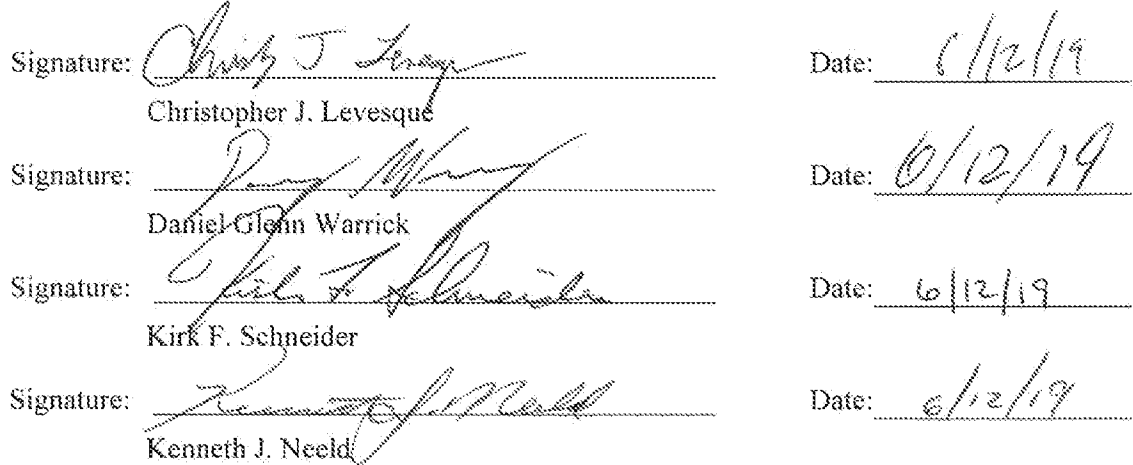 Signature: Christ J Levesque Date: 6/12/19
Christopher J. Levesque
Signature: Date: 6/12/19
Daniel Glenn Warrick
Signature: Kirk F Schneider Date: 6/12/19
Kirk F. Schneider
Signature: Kenneth J. Neeld Date: 6/12/19
Kenneth J. Neeld